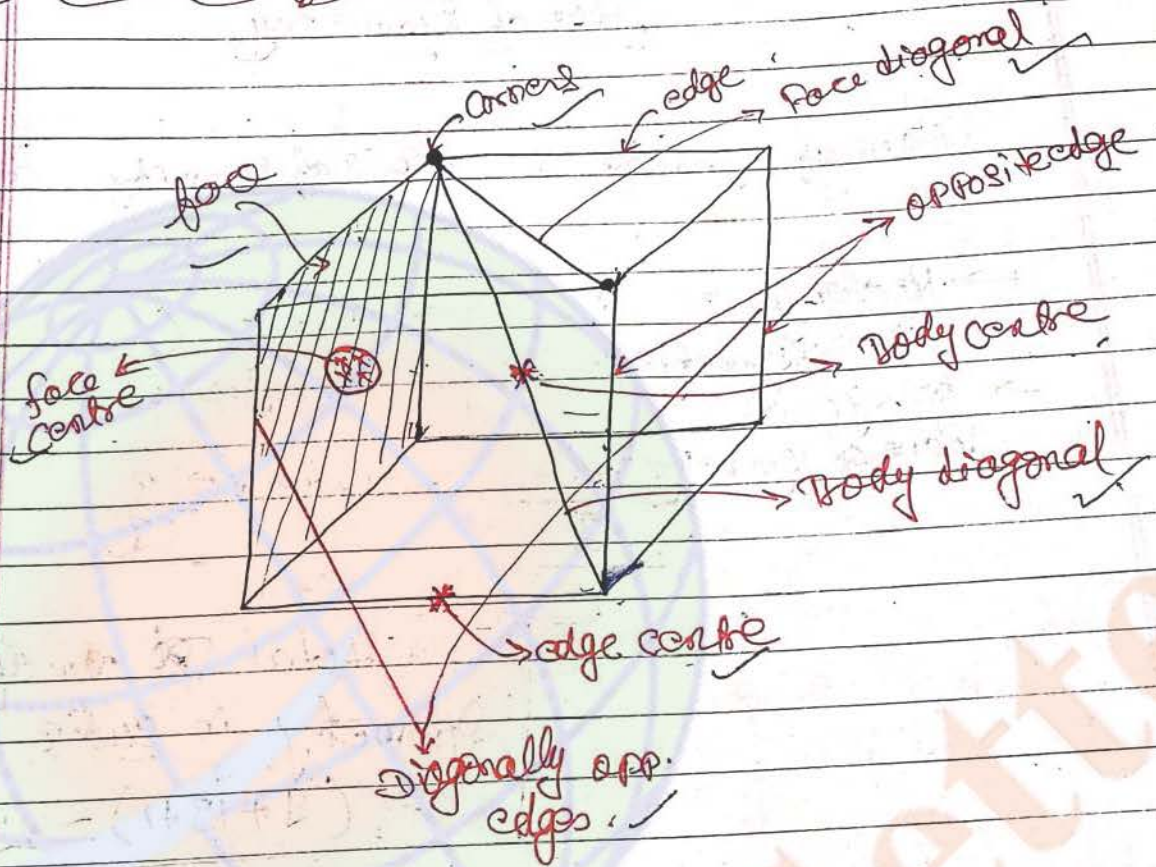 corners
edge
Face diagonal
face
opposite edge
Body centre
face
centre
Body diagonal
edge centre
Diagonally opp.
edges.